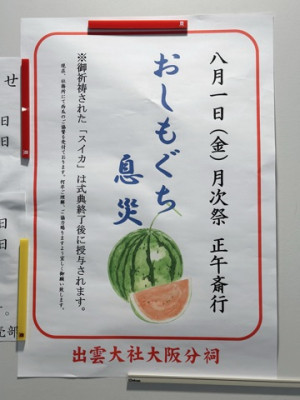 八月一日（金）月次祭 正午斎行
おしもぐち
息災
※御祈祷された「スイカ」は式典終了後に授与されます。
出雲大社大阪分祠
せ
日
日
日
日
。